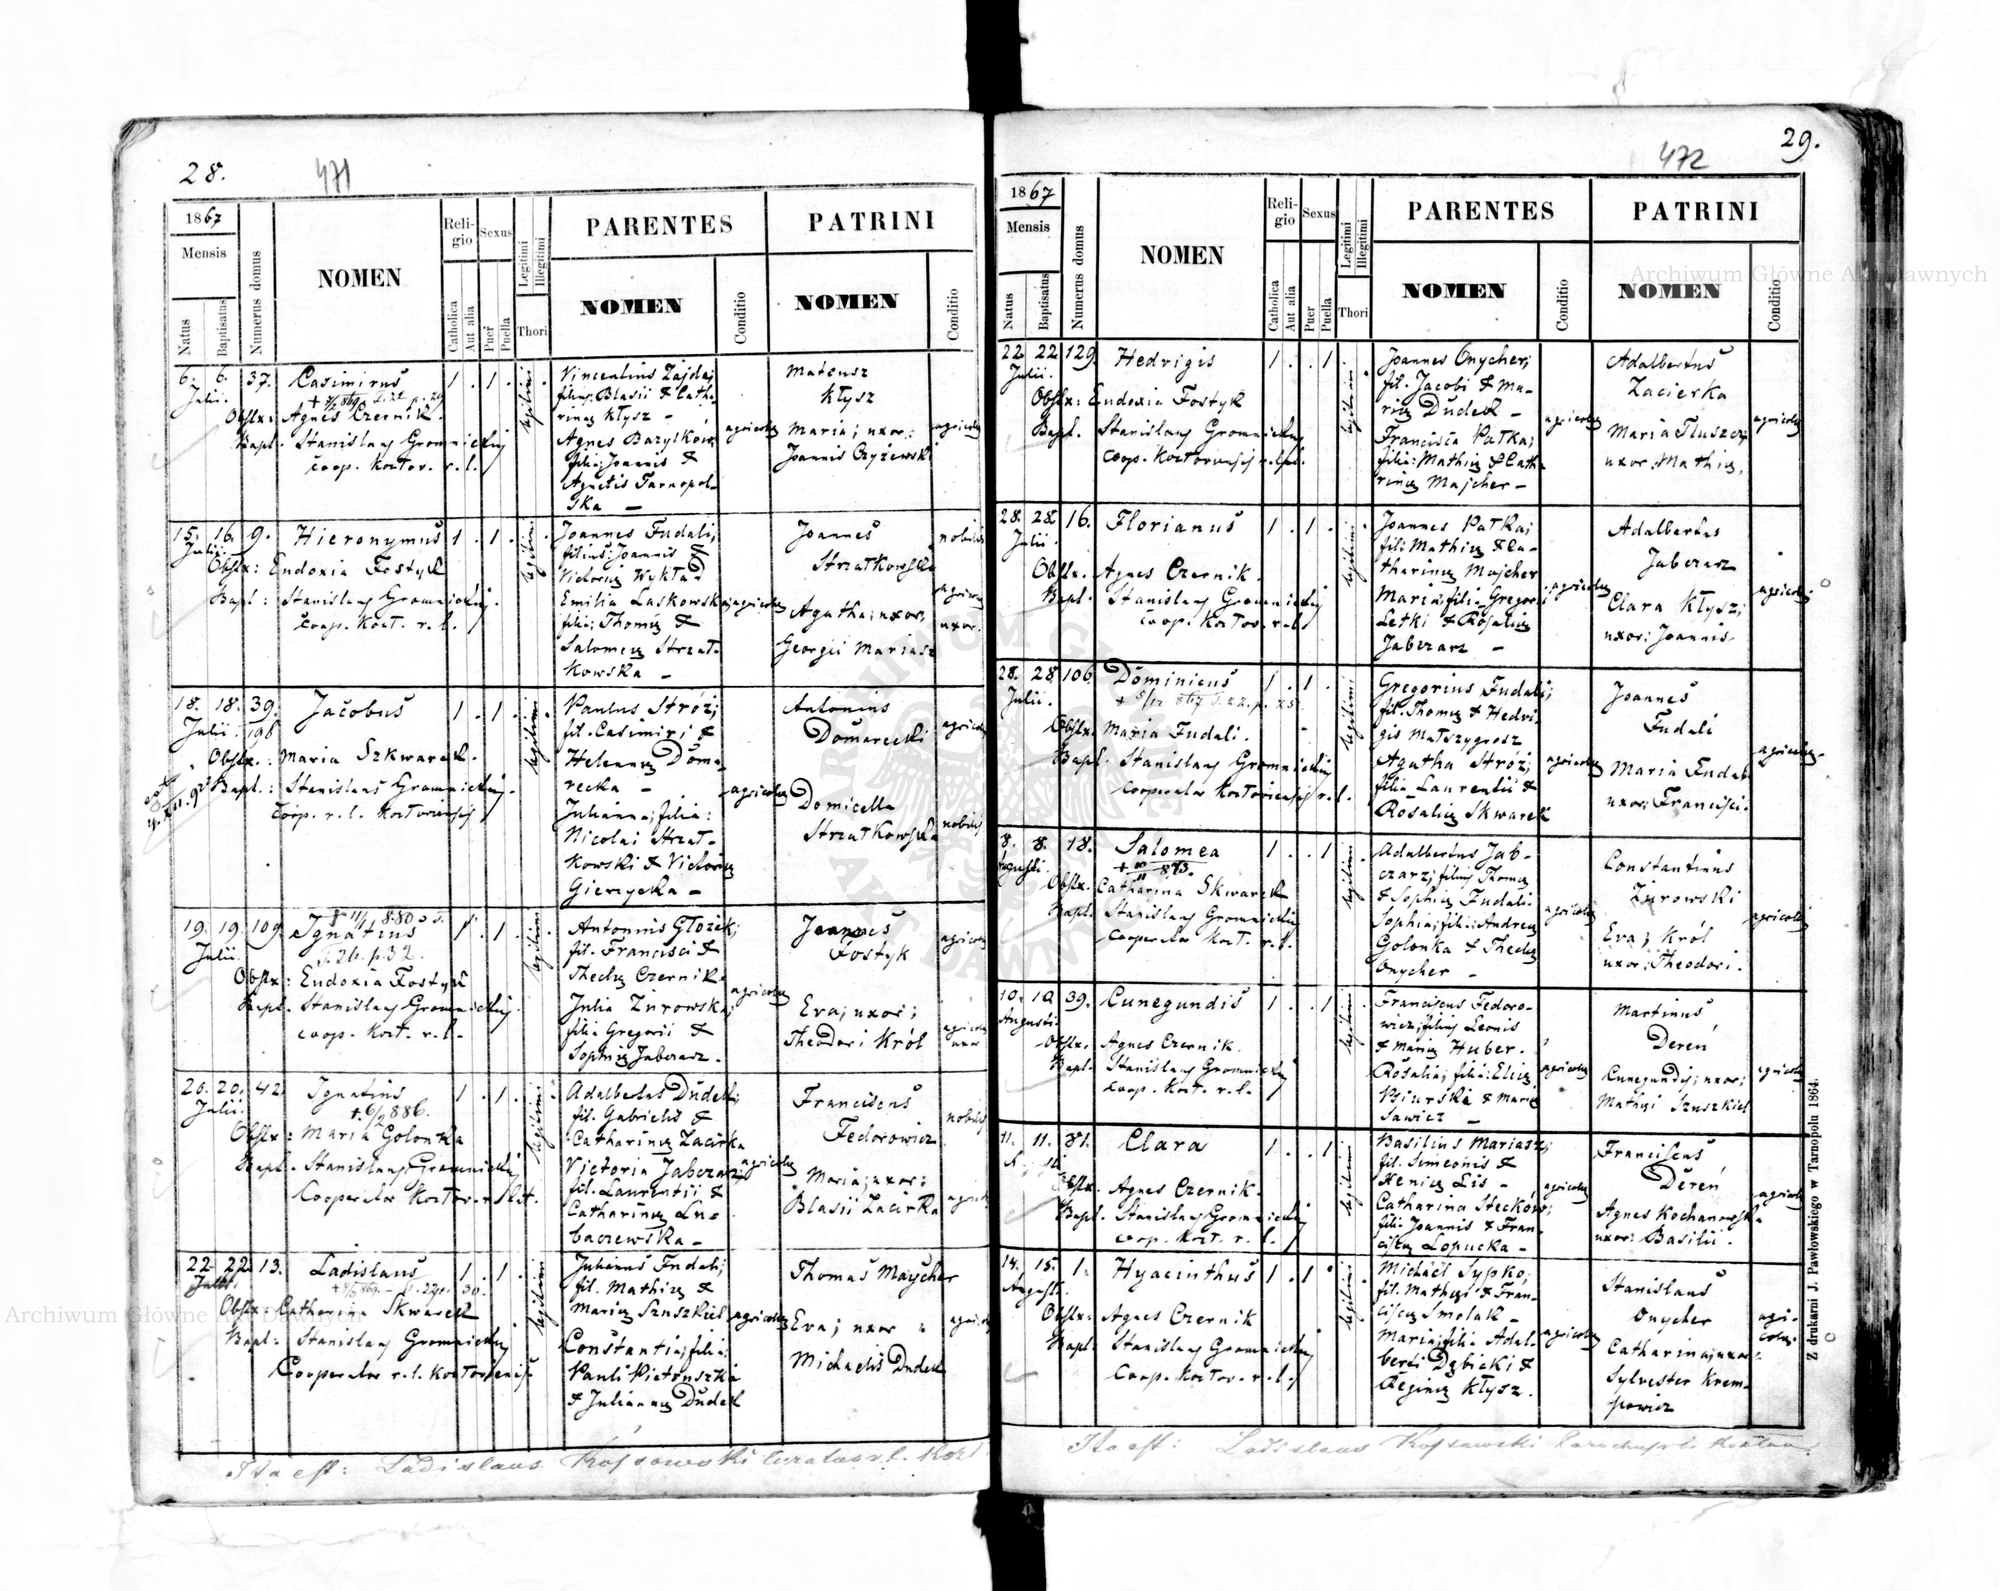 28.
471
1867
Mensis
Natus
Baptisatus
Numerus domus
NOMEN
Religio
Catholica
Aut alia
Sexus
Puer
Puella
Legitimi
Illegitimi
Thori
PARENTES
NOMEN
Conditio
PATRINI
NOMEN
Conditio
6. 6. 37. Casimirus 1 . 1 .
Julii.
Obstx: Agnes Czernik.
Bapt. Stanislaus Gromnicki
coop. Kozlov. r. l.
legitimi
Vincentius Zajdel;
filius Blasii & Catha-
rinæ Kłysz –
Agnes Bazylków;
filia Joannis &
Agnetis Tarnopol-
ska –
agricolæ
Mateusz
Kłysz
Maria; uxor:
Joannis Czyżewski
agricolæ
15. 16. 9. Hieronymus 1 . 1 .
Julii.
Obstx: Eudoxia Fostyk
Bapt: Stanislaus Gromnicki
Coop. Kozł. r. l.
legitimi
Joannes Fudali;
filius: Joannis &
Victoriæ Wykład
Emilia Laskowska
filia; Thomæ &
Salomeæ Strzał-
kowska –
agricolæ
Joannes
Strzałkowski
nobilis
Agatha; uxor;
Georgii Mariasz
agricolæ
uxor.
18. 18. 39. Jacobus 1 . 1 .
Julii 196
Obstx.: Maria Szkwarek.
Bapt.: Stanislaus Gromnicki
Coop. r. l. Kozloviensis
legitimi
Paulus Stróż;
fil. Casimiri &
Helenæ Doma-
recka –
Julianna; filia:
Nicolai Strzał-
kowski & Victoriæ
Gierzycka –
agricolæ
Antonius
Domarecki
agricolæ
Domicella
Strzałkowska
nobilis
19. 19. 109. Ignatius 1 . 1 .
Julii.
Obstx: Eudoxia Fostyk
Bapt. Stanislaus Gromnicki
coop. Kozł. r. l.
legitimi
Antonius Głozik;
fil. Francisci &
Theclæ Czernik.
Julia Żurowska;
filia Gregorii &
Sophiæ Jabczarz.
agricolæ
Joannes
Fostyk
agricolæ
Eva; uxor;
Theodori Król
agricolæ
uxor
20. 20. 42. Ignatius 1 . 1 .
Julii.
Obstx: Maria Golonka
Bapt. Stanislaus Gromnicki
Cooperator Kozlov. r. lat.
legitimi
Adalbertus Dudek;
fil. Gabrielis &
Catharinæ Zacirka
Victoria Jabczarz
fil. Laurentii &
Catharinæ Lu-
baczewska –
agricolæ
Franciscus
Fedorowicz
nobilis
Maria; uxor:
Blasii Zacirka
22. 22. 13. Ladislaus 1 . 1 .
Julii.
Obstx: Catharina Skwarek
Bapt: Stanislaus Gromnicki
Cooperator r. l. Kozloviensis
legitimi
Julianus Fudali;
fil. Mathiæ &
Mariæ Szuszkiel
Constantia; filia;
Pauli Pietruszka
& Juliannæ Dudek
agricolæ
Thomas Maycher
Eva; uxor
Michaelis Dudek
Ita est: Ladislaus Kossowski Curatus r. l. Kozl
29.
472
1867
Mensis
Natus
Baptisatus
Numerus domus
NOMEN
Religio
Catholica
Aut alia
Sexus
Puer
Puella
Legitimi
Illegitimi
Thori
PARENTES
NOMEN
Conditio
PATRINI
NOMEN
Conditio
22 22 129. Hedvigis 1 . . 1
Julii.
Obstx: Eudoxia Fostyk
Bapt. Stanislaus Gromnicki
coop. Kozloviensis r. lat.
legitimi
Joannes Onycher;
fil. Jacobi & Ma-
riæ Dudek –
Francisca Patka;
filia: Mathiæ & Catha-
rinæ Majcher –
agricolæ
Adalbertus
Zacierka
Maria Tłuszcz
uxor: Mathiæ.
agricolæ
28. 28 16. Florianus 1 . 1 .
Julii.
Obstx. Agnes Czernik.
Bapt. Stanislaus Gromnicki
coop. Kozlov. r. l.
legitimi
Joannes Patka;
fil: Mathiæ & Ca-
tharinæ Majcher
Maria; filia Gregori
Letki & Rosaliæ
Jabczarz –
agricolæ
Adalbertus
Jabczarz
Clara Kłysz;
uxor: Joannis
agricolæ
28. 28 106 Dominicus 1 . 1 .
Julii.
Obstx. Maria Fudali.
Bapt. Stanislaus Gromnicki
Cooperator Kozloviensis r. l.
legitimi
Gregorius Fudali;
fil. Thomæ & Hedvi-
gis Matszygrosz
Agatha Stróż;
filia Laurentii &
Rosaliæ Skwarek
agricolæ
Joannes
Fudali
Maria Fudali
uxor: Francisci.
agricolæ
8. 8. 18. Salomea 1 . . 1
Augusti.
Obstx. Catharina Skwarek
Bapt. Stanislaus Gromnicki
Cooperator Kozł. r. l.
legitimi
Adalbertus Jab-
czarz; filius Thomæ
& Sophiæ Fudali.
Sophia; filia: Andreæ
Golonka & Theclæ
Onycher –
agricolæ
Constantinus
Żurowski
Eva; Król
uxor: Theodori.
agricolæ
10. 10 39. Cunegundis 1 . . 1
Augusti.
Obstx. Agnes Czernik.
Bapt. Stanislaus Gromnicki
coop. Kozł. r. l.
legitimi
Franciscus Fedoro-
wicz; filius Leonis
& Mariæ Huber.
Rosalia; filia: Eliæ
Biurska & Mariæ
Sawicz –
agricolæ
Martinus
Dereń
Cunegundis; uxor;
Mathæi Szuszkiel
agricolæ
11. 11. 81. Clara 1 . . 1
Obstx. Agnes Czernik.
Bapt. Stanislaus Gromnicki
coop. Kozł. r. l.
legitimi
Basilius Mariasz;
fil. Simeonis &
Xeniæ Lis –
Catharina Steckow;
filia Joannis & Fran-
ciscæ Łopucka –
agricolæ
Franciscus
Dereń
Agnes Kochanowska
uxor: Basilii.
agricolæ
14. 15. 1. Hyacinthus 1 . 1
Augusti.
Obstx: Agnes Czernik
Bapt: Stanislaus Gromnicki
Coop. Kozlov. r. l.
legitimi
Michael Sypko;
fil. Mathæi & Fran-
ciscæ Smolak –
Maria; filia Adal-
berti Dębicki &
Reginæ Kłysz.
agricolæ
Stanislaus
Onycher
Catharina; uxor:
Sylvester Krem-
powicz
agri-
colæ.
Ita est: Ladislaus Kossowski
Z drukarni J. Pawłowskiego w Tarnopolu 1864.
Archiwum Główne Akt Dawnych
Archiwum Główne Akt Dawnych
ARCHIWUM GŁÓWNE
AKT DAWNYCH